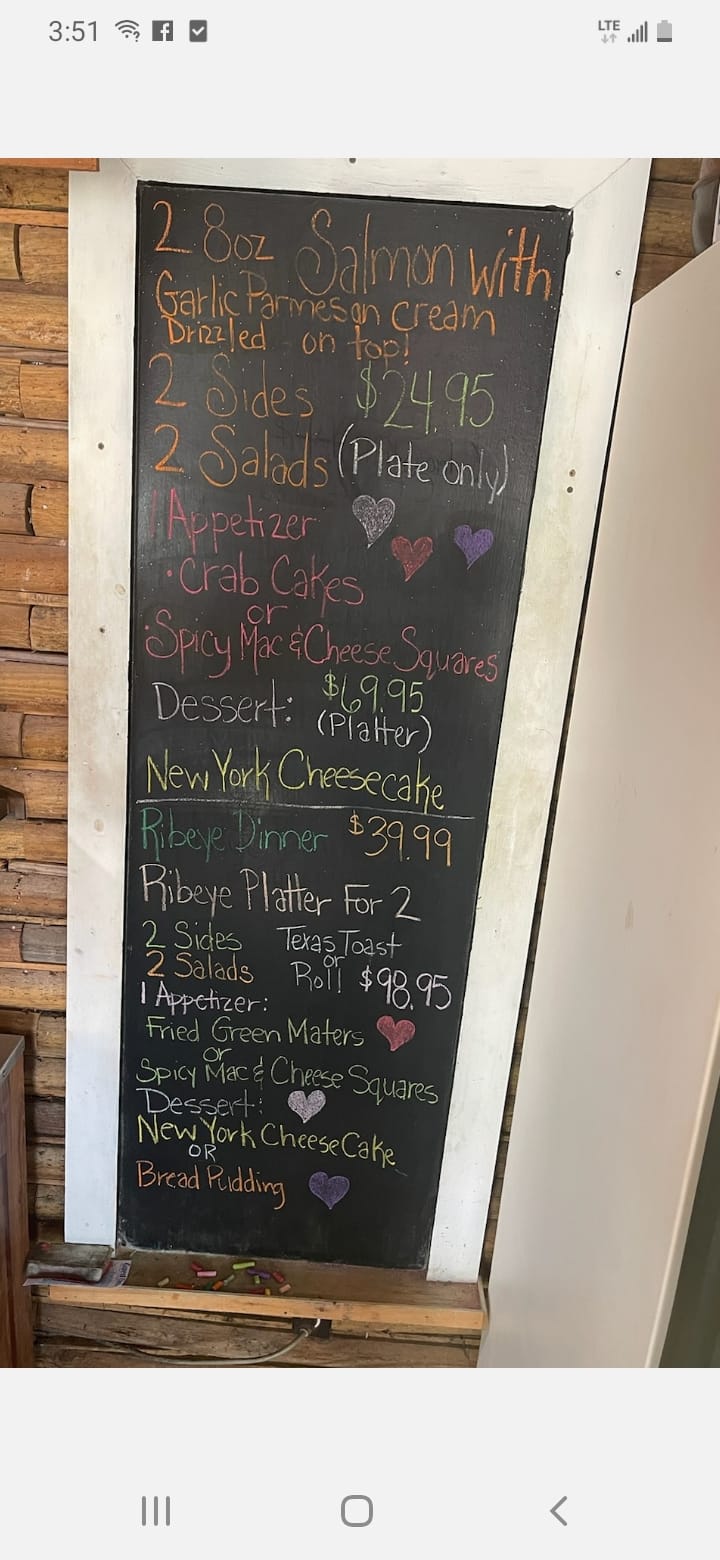 3:51
LTE
2 8oz Salmon with
Garlic Parmesan cream
Drizzled on top!
2 Sides $24.95
2 Salads (Plate only)
1 Appetizer
·Crab Cakes
or
·Spicy Mac & Cheese Squares
Dessert: $69.95
(Platter)
New York Cheesecake
Ribeye Dinner $39.99
Ribeye Platter For 2
2 Sides Texas Toast
or
2 Salads Roll $98.95
1 Appetizer:
Fried Green Maters
or
Spicy Mac & Cheese Squares
Dessert:
New York CheeseCake
OR
Bread Pudding